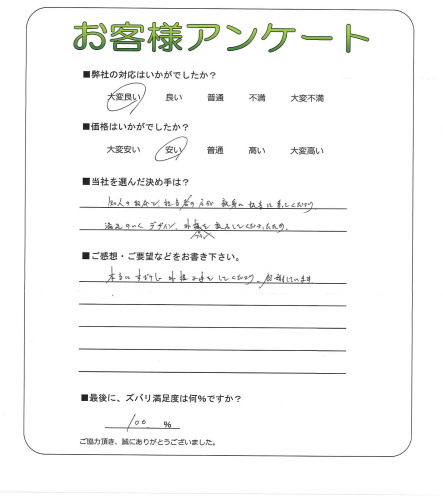 お客様アンケート
■弊社の対応はいかがでしたか？
大変良い 良い 普通 不満 大変不満
■価格はいかがでしたか？
大変安い 安い 普通 高い 大変高い
■当社を選んだ決め手は？
知人の紹介で、担当者の方が親身に
満足のいくデザイン、外構を
■ご感想・ご要望などをお書き下さい。
本当にすばらしい外構工事をしてくださり、感謝しています。
■最後に、ズバリ満足度は何％ですか？
100 %
ご協力頂き、誠にありがとうございました。